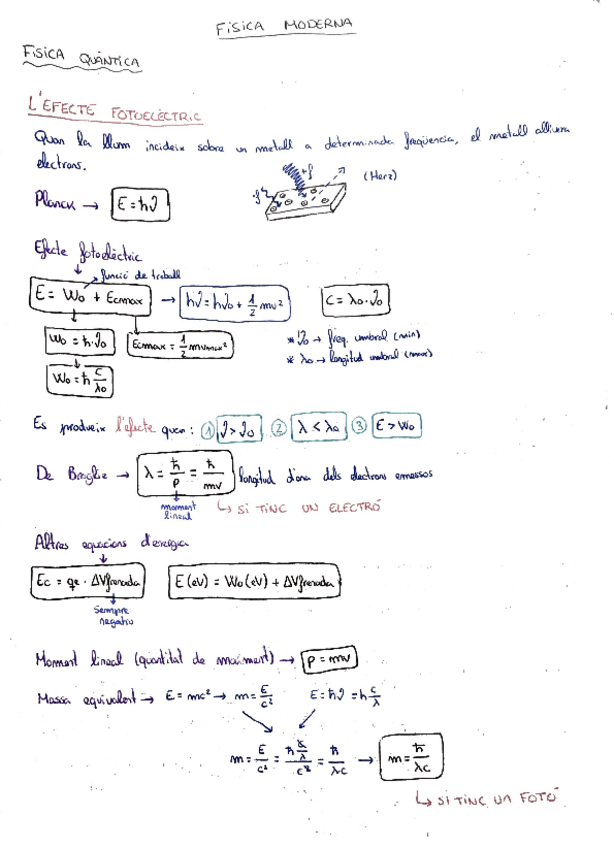 FÍSICA MODERNA
FÍSICA QUÀNTICA
L'EFECTE FOTOELÈCTRIC
Quan la llum incideix sobre un metall a determinada freqüència, el metall allibera
electrons.
(Herz)
Planck → E = ħν
Efecte fotoelèctric
funció de treball
E = W₀ + Ecmax → ħν = ħν₀ + 1/2 mv² C = λ₀·ν₀
W₀ = ħ·ν₀ Ecmax = 1/2 mvmax²
* ν₀ → freq. umbral (min)
* λ₀ → longitud umbral (max)
W₀ = ħ C/λ₀
Es produeix l'efecte quan: ① ν > ν₀ ② λ < λ₀ ③ E > W₀
De Broglie → λ = ħ/p = ħ/mv longitud d'ona dels electrons emessos
moment
lineal
↳ SI TINC UN ELECTRÓ
Altres equacions d'energia
Ec = qe · ΔVfrenada E (eV) = W₀ (eV) + ΔVfrenada
Sempre
negatiu
Moment lineal (quantitat de moviment) → p = mv
Massa equivalent → E = mc² → m = E/c² E = ħν = ħ c/λ
m = E/c² = ħ c/λ / c² = ħ/λc → m = ħ/λc
↳ SI TINC UN FOTÓ